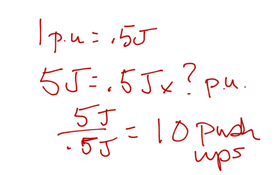 1 p.u = .5J
5J = .5J x ? p.u.
5J / .5J = 10 push
ups